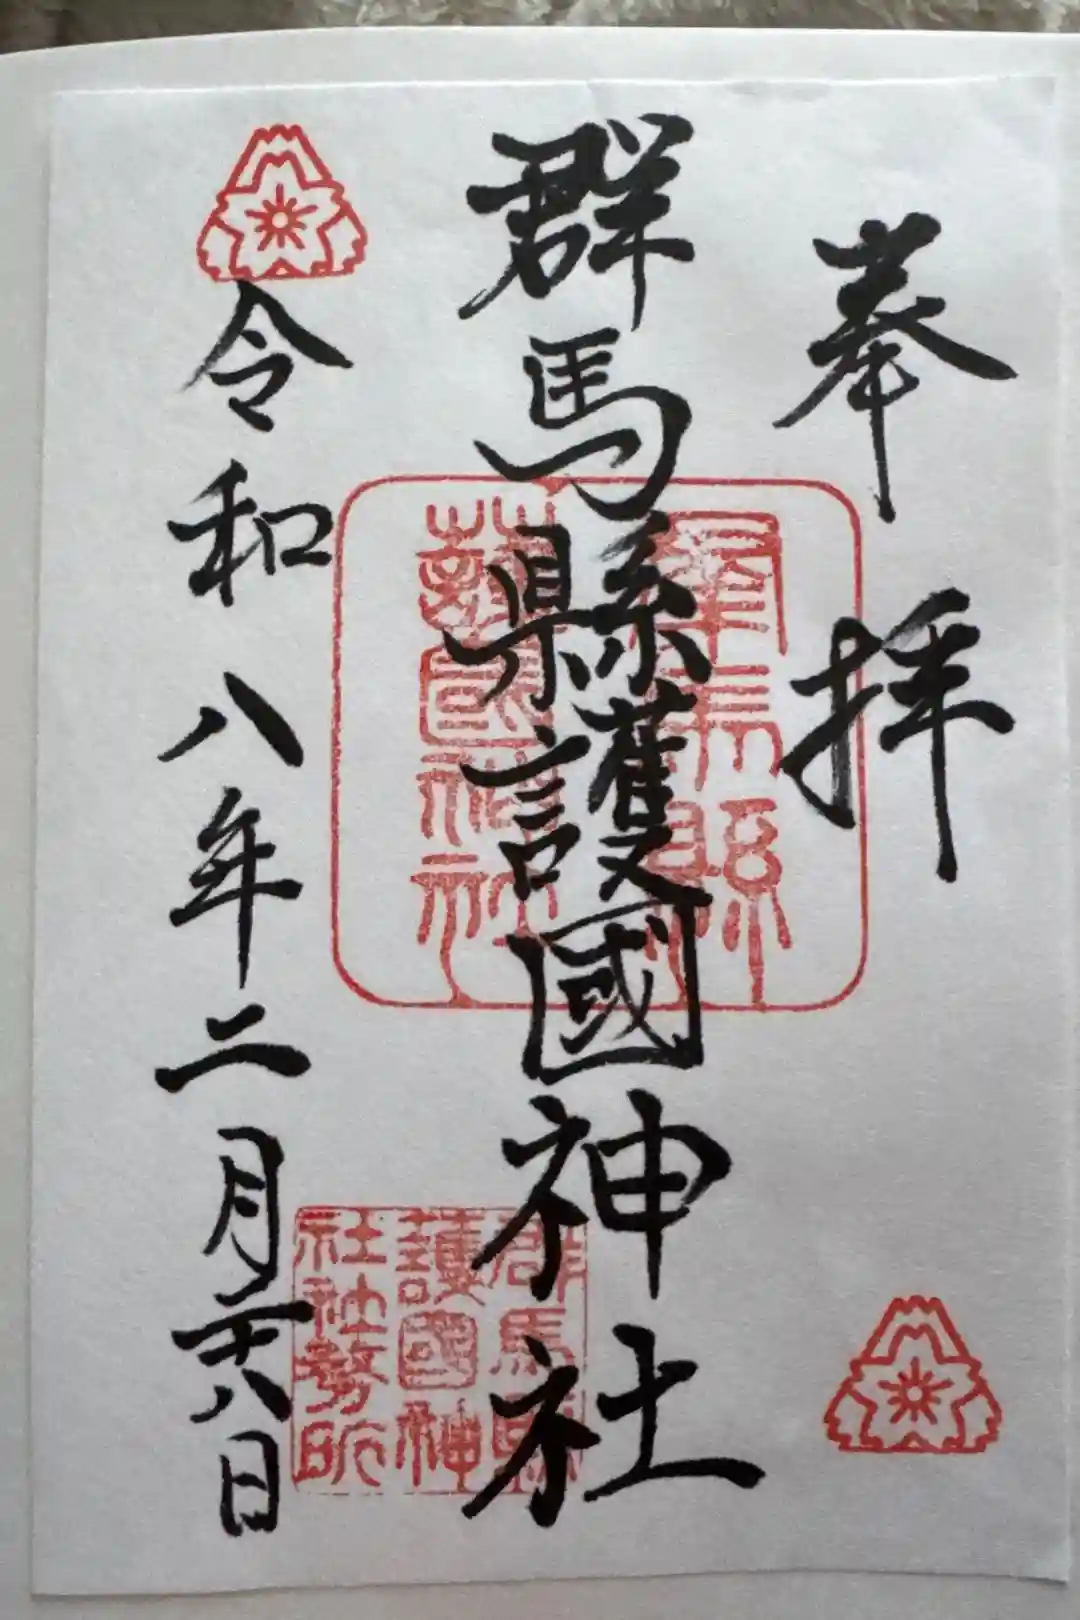 奉拝
群馬縣護國神社
令和八年二月二十八日
群馬縣
護國神社
群馬縣
護國神
社社務所